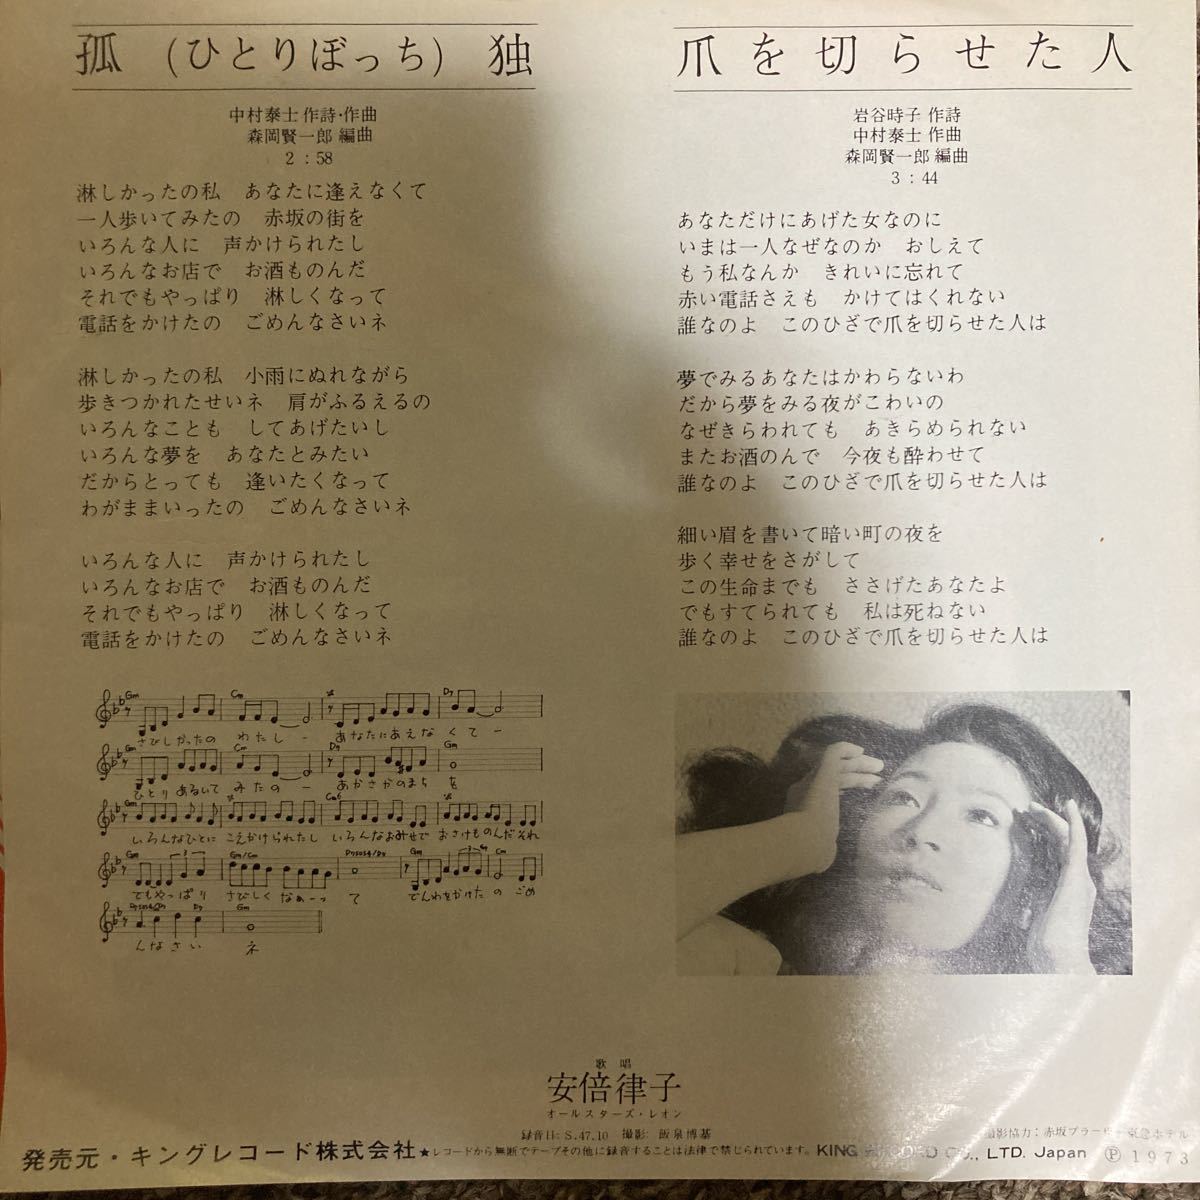 孤(ひとりぼっち)独
中村泰士 作詩・作曲
森岡賢一郎 編曲
2：58
淋しかったの私　あなたに逢えなくて
一人歩いてみたの　赤坂の街を
いろんな人に　声かけられたし
いろんなお店で　お酒ものんだ
それでもやっぱり　淋しくなって
電話をかけたの　ごめんなさいネ
淋しかったの私　小雨にぬれながら
歩きつかれたせいネ　肩がふるえるの
いろんなことも　してあげたいし
いろんな夢を　あなたとみたい
だからとっても　逢いたくなって
わがままいったの　ごめんなさいネ
いろんな人に　声かけられたし
いろんなお店で　お酒ものんだ
それでもやっぱり　淋しくなって
電話をかけたの　ごめんなさいネ
Gm Cm D7
さびしかったの わたし― あなたにあえな くて―
Gm Cm D7 Gm
ひとり あるいて みたの ― あかさかのまち を
Gm Cm6
いろんなひとに こえかけられたし いろんなおみせで おさけものんだ それ
Gm Gm/Cm D7sus4/D7 Gm Cm
でもやっぱり さびしく なぁーっ て でんわをかけた の ごめ
D7sus4/D7 D7 Gm
んなさい ネ
爪を切らせた人
岩谷時子 作詩
中村泰士 作曲
森岡賢一郎 編曲
3：44
あなただけにあげた女なのに
いまは一人なぜなのか　おしえて
もう私なんか　きれいに忘れて
赤い電話さえも　かけてはくれない
誰なのよ　このひざで爪を切らせた人は
夢でみるあなたはかわらないわ
だから夢をみる夜がこわいの
なぜきらわれても　あきらめられない
またお酒のんで　今夜も酔わせて
誰なのよ　このひざで爪を切らせた人は
細い眉を書いて暗い町の夜を
歩く幸せをさがして
この生命までも　ささげたあなたよ
でもすてられても　私は死ねない
誰なのよ　このひざで爪を切らせた人は
歌唱
安倍律子
オールスターズ・レオン
録音日：S.47.10　撮影：飯泉博基
撮影協力：赤坂プラーザ・東急ホテル
発売元・キングレコード株式会社★レコードから無断でテープその他に録音することは法律で禁じられています。KING RECORD CO., LTD. Japan Ⓟ1973